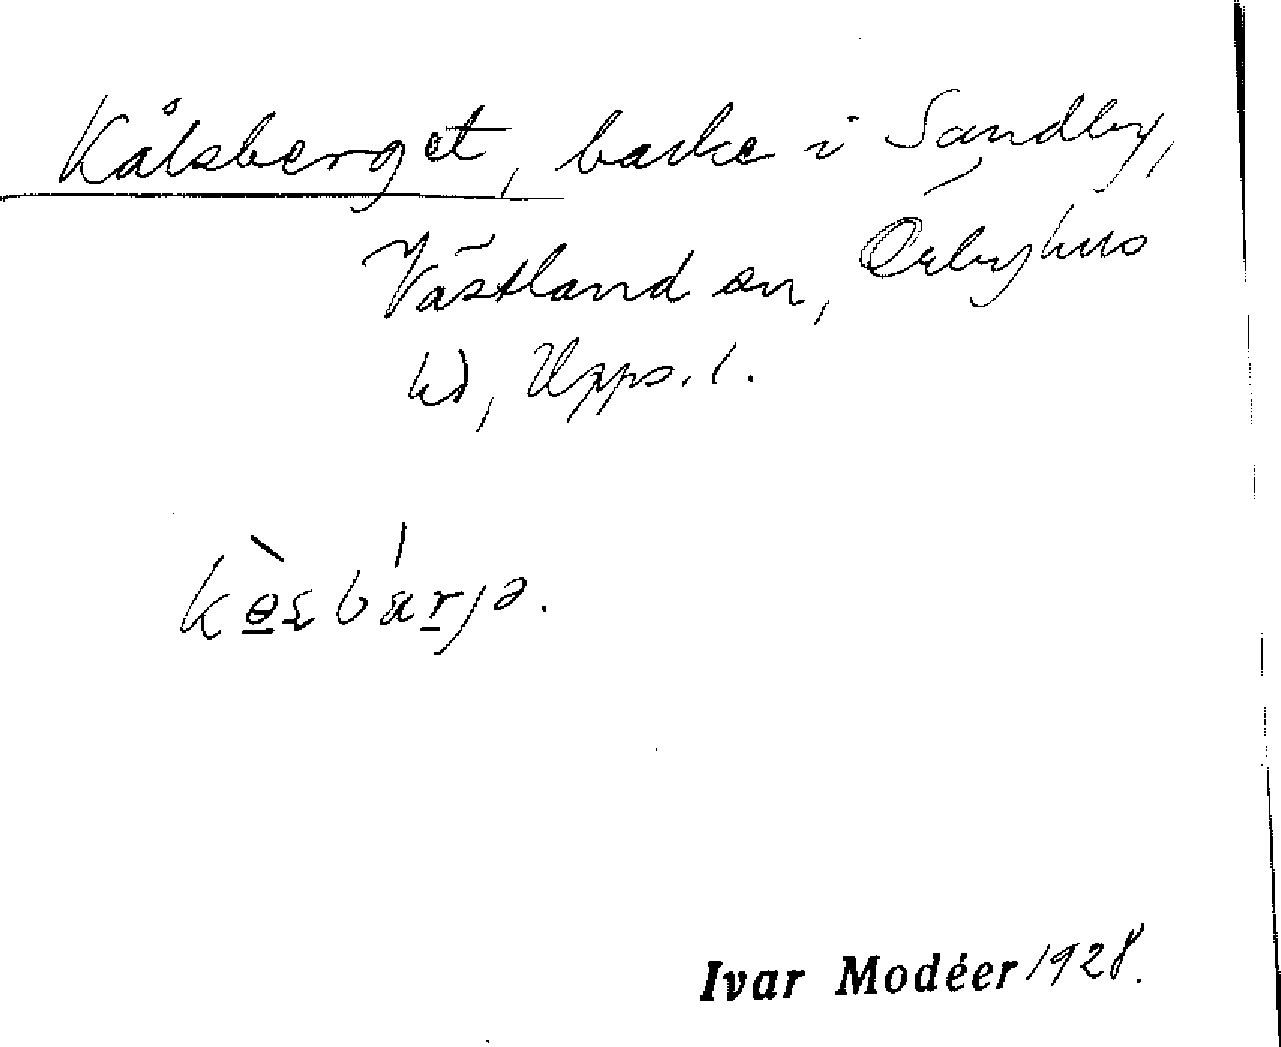 Kålsberget, backe i Sandby,
Västland sn, Örbyhus
hd, Upps. l.
kèsbárjə.
Ivar Modéer 1928.